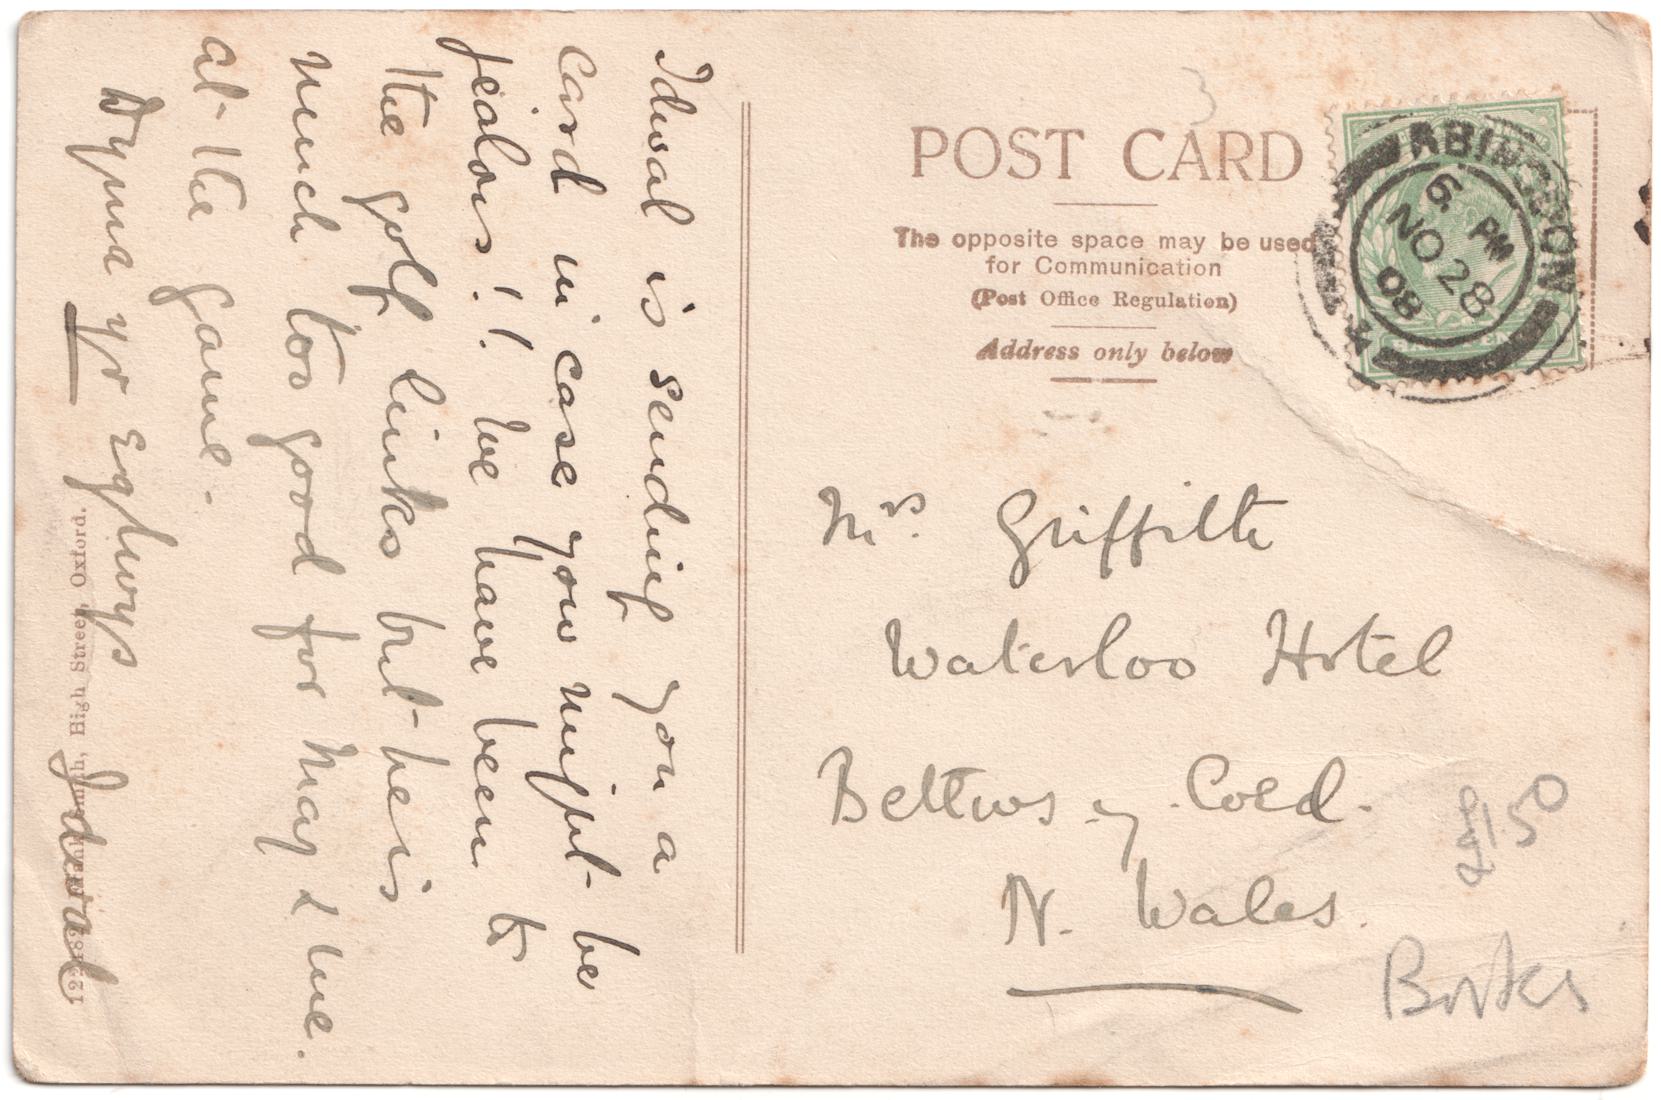 Idwal is sending you a
card in case you might be
jealous!! We have been to
the golf links but he is
much too good for May & me.
at the game.
Dyma yr Eglwys
Idwal
High Street, Oxford.
POST CARD
The opposite space may be used
for Communication
(Post Office Regulation)
Address only below
ABINGDON
6 PM
NO 28
08
Mrs. Griffith
Waterloo Hotel
Bettws y Coed.
N. Wales.
£1.50
Berks